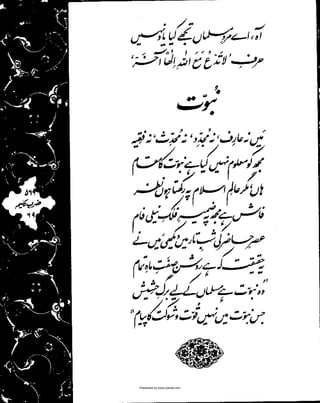 آہ، اے مردِ مسلماں تجھے کیا یاد نہیں
حرفِ 'لَا تَدْعُ مَعَ اللّٰہِ اِلٰھًا آخَر'
نبوّت
میں نہ عارف، نہ مجدّد، نہ محدّث، نہ فقیہ
مجھ کو معلوم نہیں کیا ہے نبوّت کا مقام
ہاں مگر عالمِ اسلام پہ رکھتا ہوں نظر
فاش ہے مجھ پہ ضمیرِ فلکِ نیلی فام
عصرِ حاضر کی شبِ تار میں دیکھی میں نے
یہ حقیقت کہ ہے روشن صفتِ ماہِ تمام
”وہ نبوّت ہے مسلماں کے لیے برگِ حشیش
جس نبوّت میں نہیں قوّت و شوکت کا پیام“
۵۶۹
ضربِ کلیم
۶۹
Presented by www.iqbalai.com